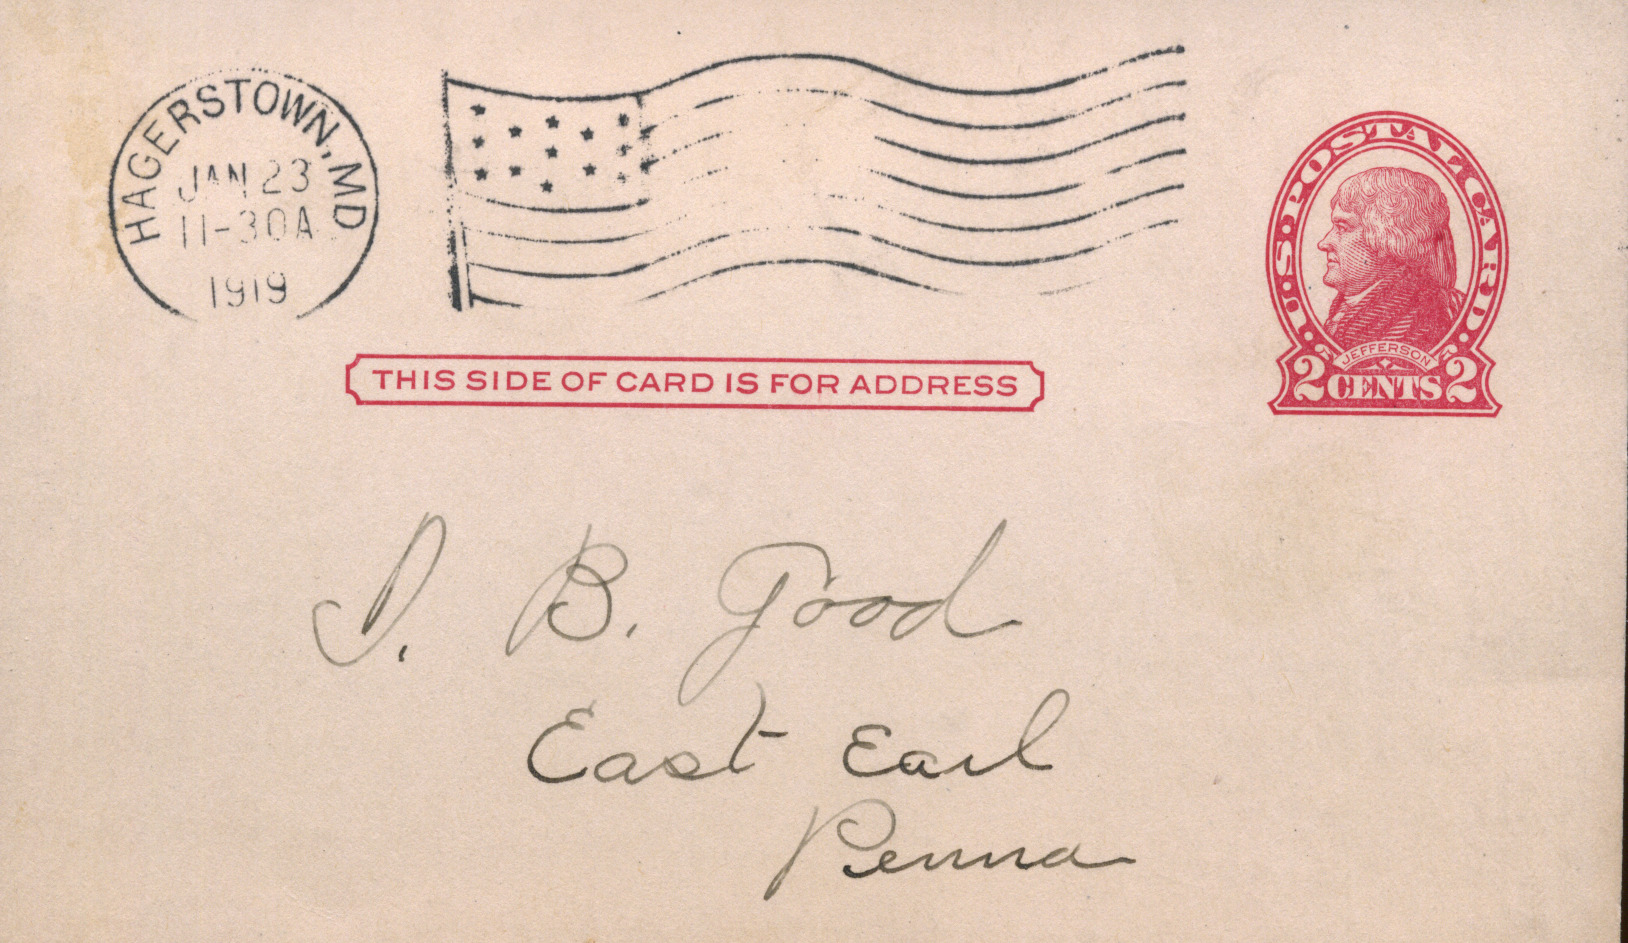 HAGERSTOWN, MD
JAN 23
11-30A
1919
U.S. POSTAL CARD.
JEFFERSON
2 CENTS 2
THIS SIDE OF CARD IS FOR ADDRESS
I. B. Good
East Earl
Penna